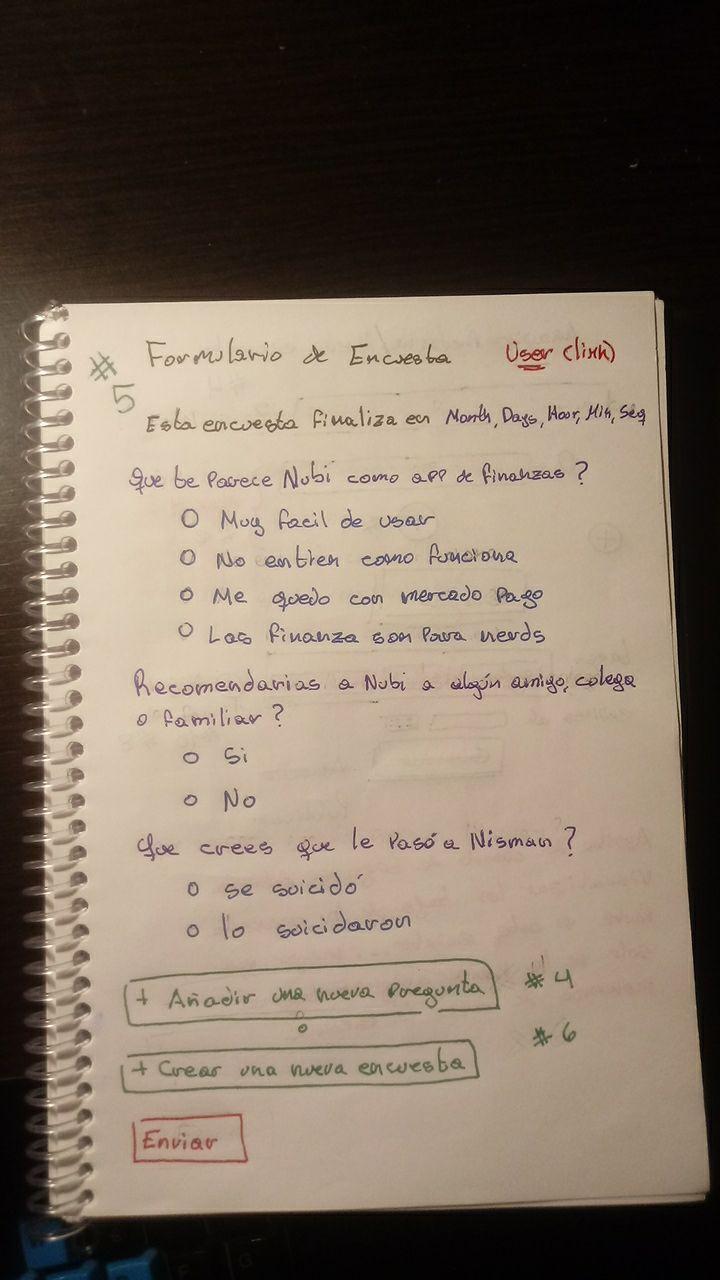 #5 Formulario de Encuesta User (link)
Esta encuesta finaliza en Month, Days, Hour, Min, Seg
Que te Parece Nubi como app de finanzas?
O Muy facil de usar
O No entien como funciona
O Me quedo con mercado Pago
O Las finanza son Para nerds
Recomendarias a Nubi a algún amigo, colega
o familiar?
O Si
O No
Que crees que le Pasó a Nisman?
O se suicidó
O lo suicidaron
+ Añadir una nueva Pregunta #4
o #6
+ Crear una nueva encuesta
Enviar